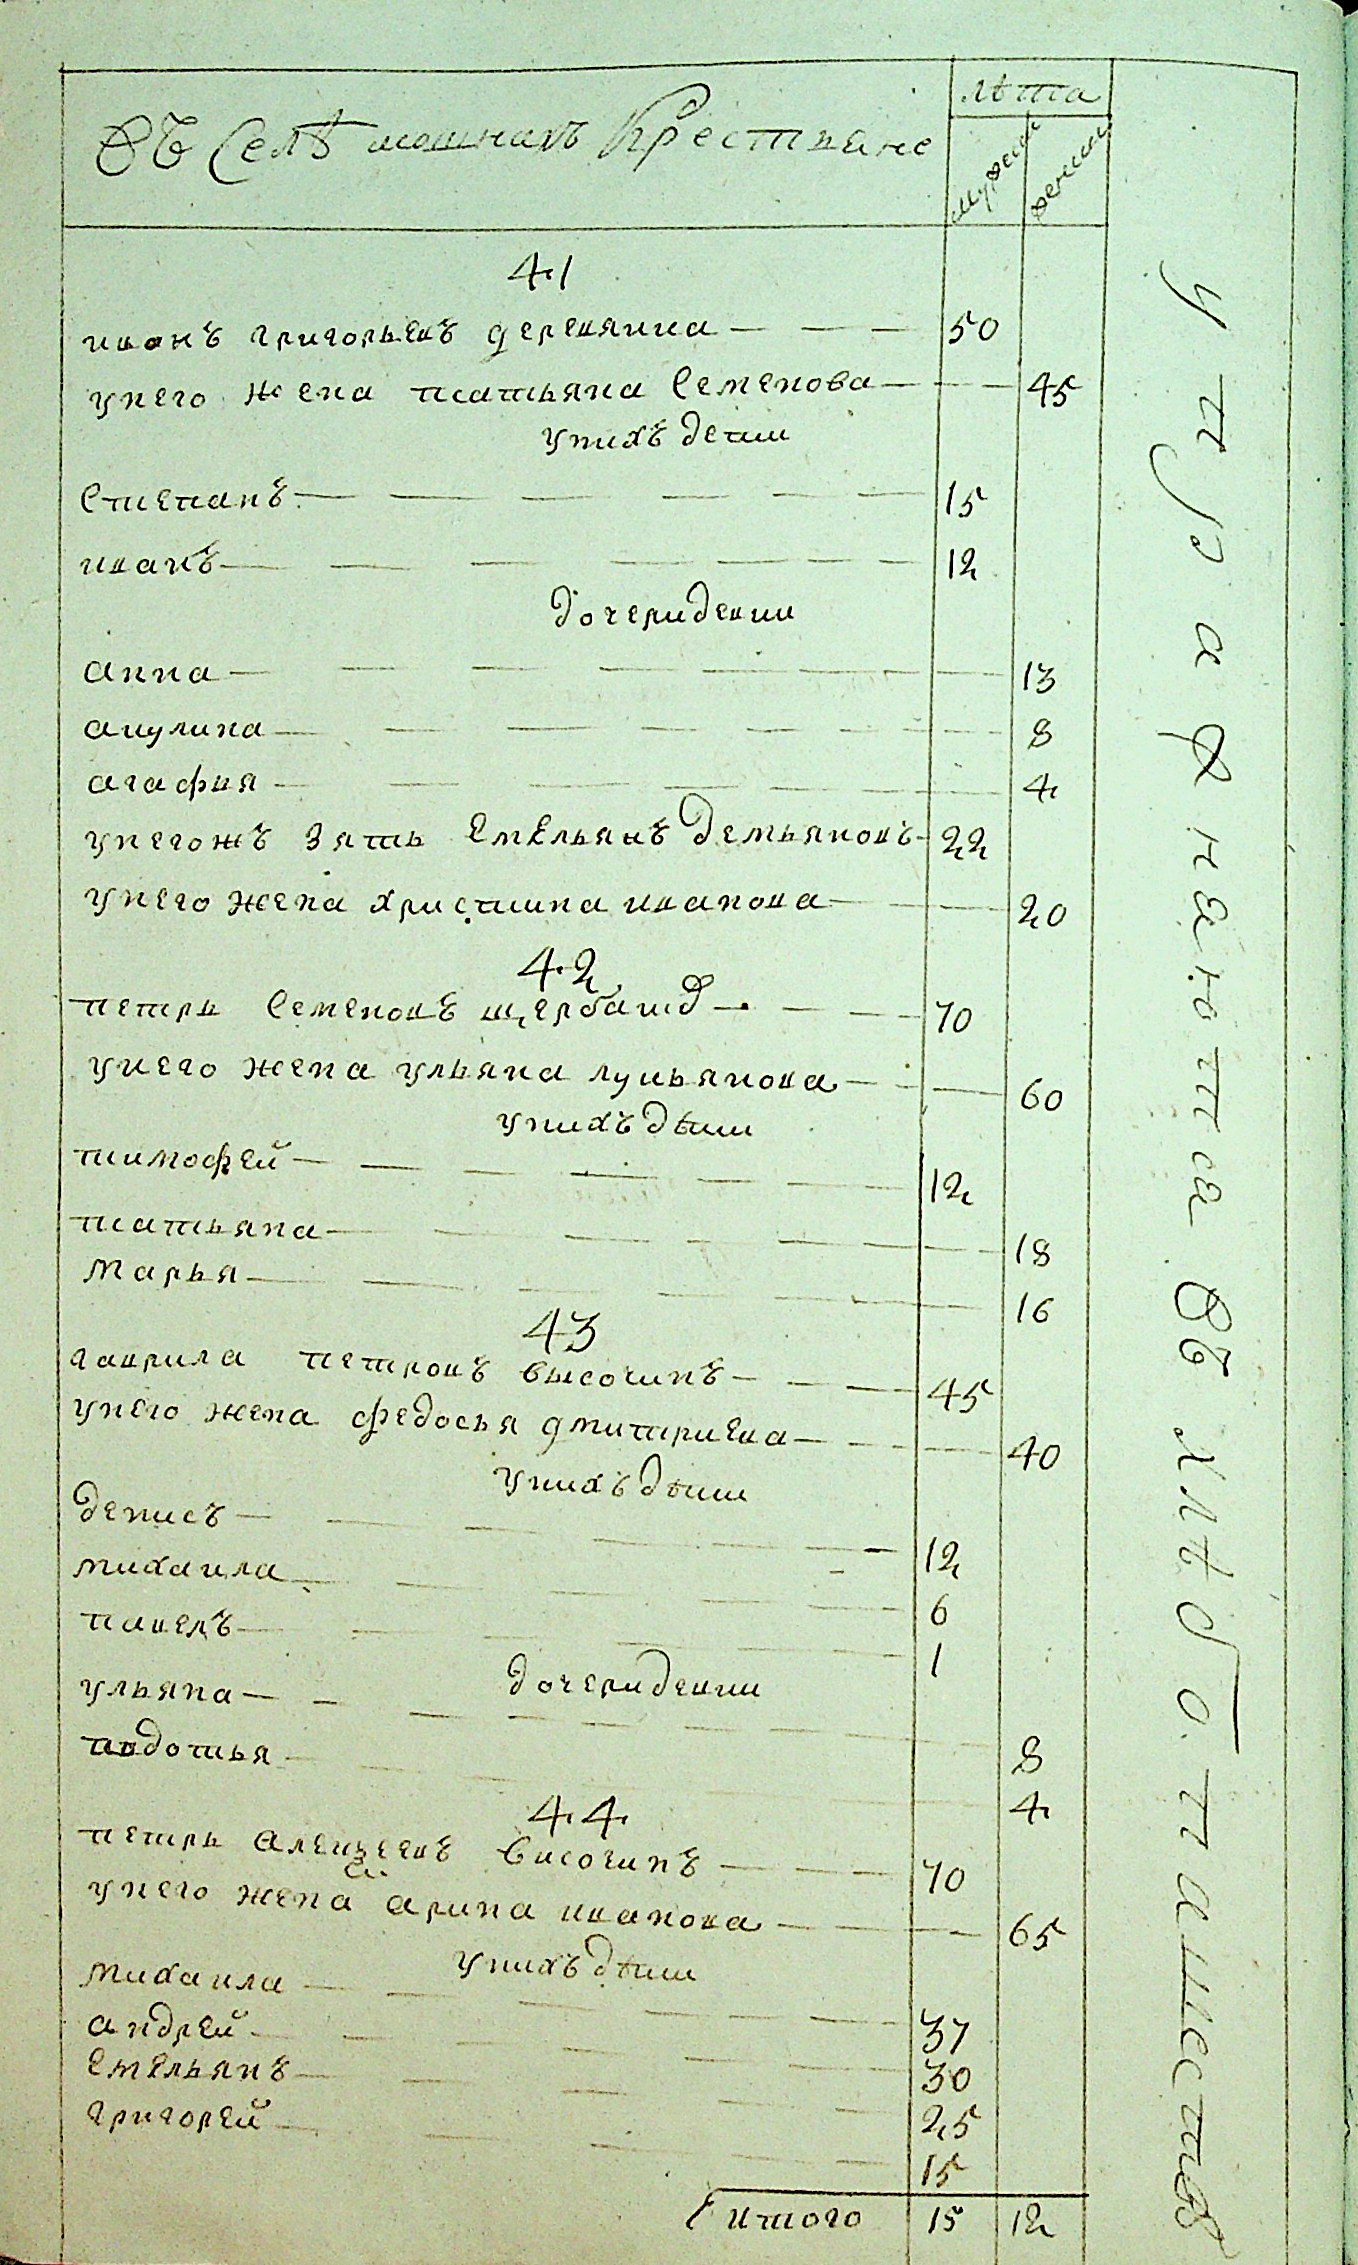 Въ Селѣ мошнахъ Крестьяне
лѣта
мужеск
женски
41
иванъ григорьевъ деревянка 50
унего жена татьяна Семенова 45
унихъ дети
Степанъ 15
иванъ 12
дочери девки
анна 13
акулина 8
агафия 4
унегожъ зять Емельянъ Демьяновъ 22
унего жена христина иванова 20
42
петръ Семеновъ щербат 70
унего жена ульяна лукьянова 60
унихъ дѣти
тимофей 12
татьяна 18
марья 16
43
гаврила петровъ высочинъ 45
унего жена федосья дмитриева 40
унихъ дѣти
денисъ 12
михаила 6
павелъ 1
дочери девки
ульяна 8
авдотья 4
44
петръ Алексеевъ височинъ 70
унего жена арина иванова 65
унихъ дѣти
михаила 37
андрей 30
Емельянъ 25
григорей 15
итого 15 12
упражнаютса въ хлѣбопашествѣ